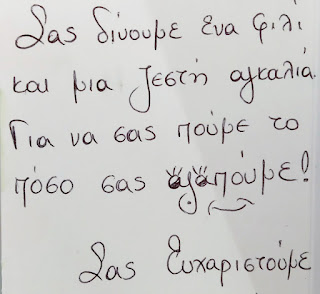 Σας δίνουμε ένα φιλί
και μια ζεστή αγκαλιά.
Για να σας πούμε το
πόσο σας αγαπούμε!
Σας Ευχαριστούμε